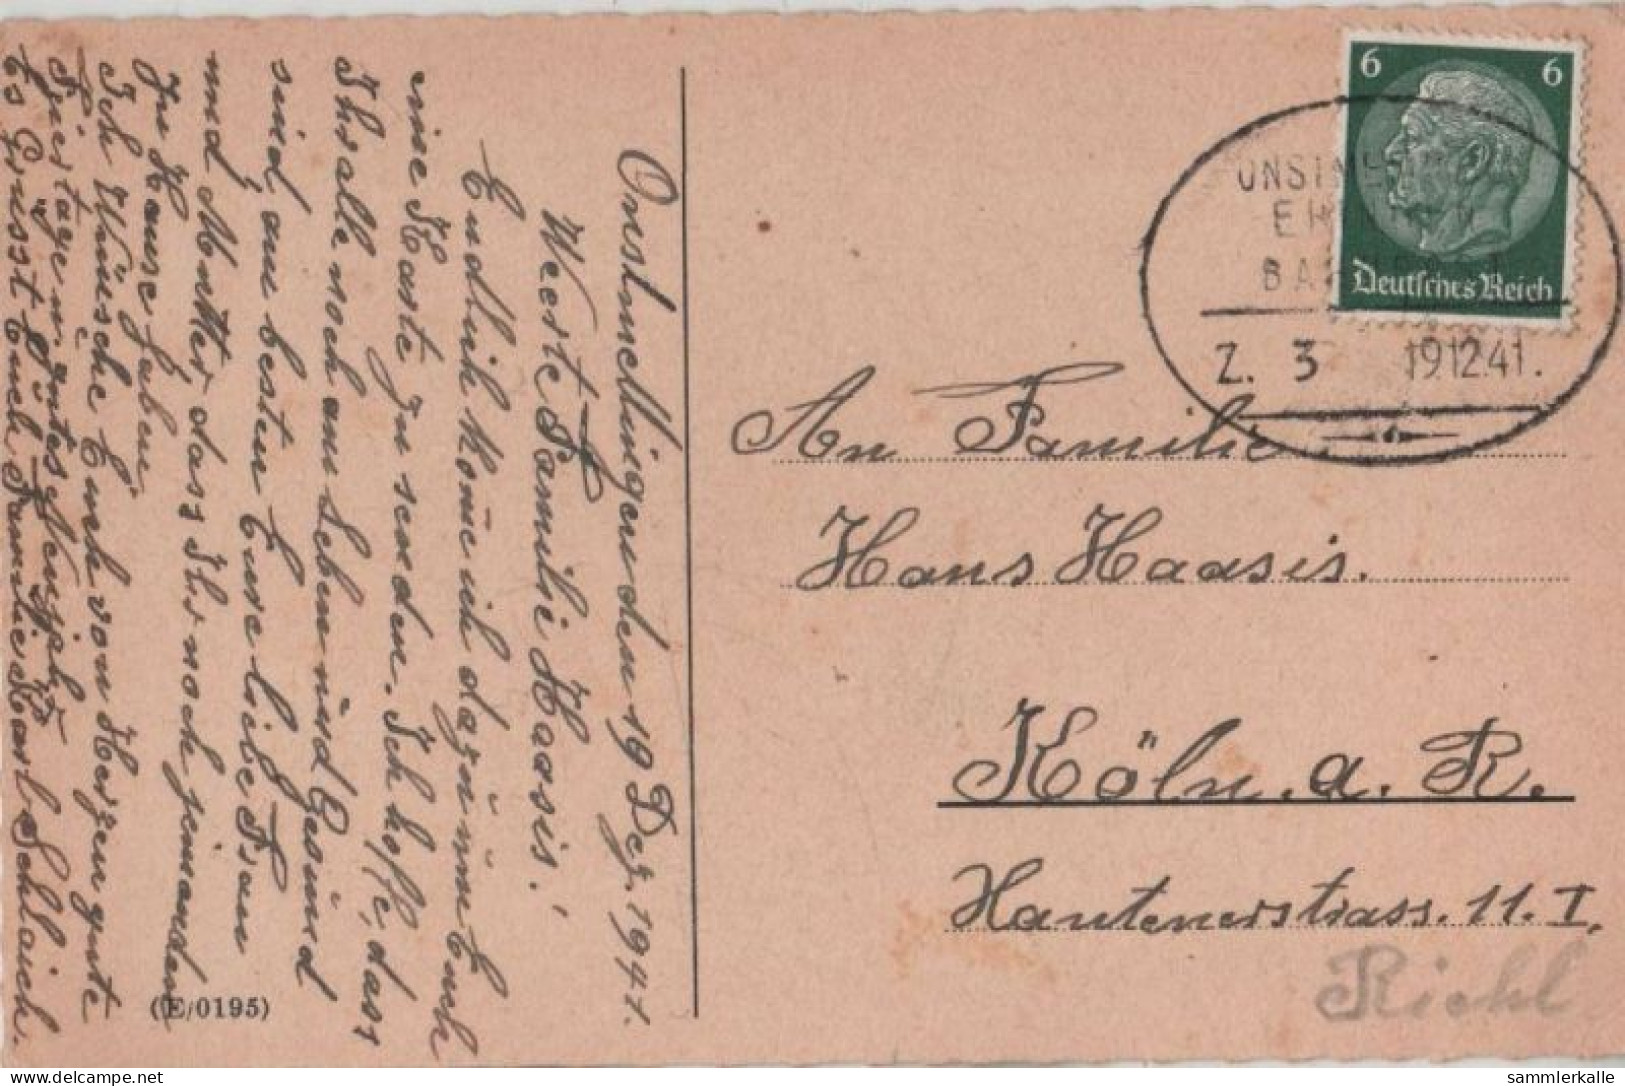 Onstmettingen den 19 Dez. 1941.
Werte Familie Haasis!
Endlich kome ich dazu um Euch
eine Karte zu senden. Ich hoffe, dass
Ihr alle noch am Leben und Gesund
sind, am besten Eure liebe Frau
und Mutter, dass Ihr noch jemanden
zu Hause haben.
Ich Wünsche Euch von Herzen gute
Feiertage u. gutes Neujahr
Es Grüsst Euch Familie Karl Schlaich.
(E/0195)
6 6
Deutsches Reich
ONSTM
BA
Z. 3 19.12.41.
An Familie
Hans Haasis.
Köln. a. R.
Xantenerstrass. 11. I.
Riehl
sammlerkalle